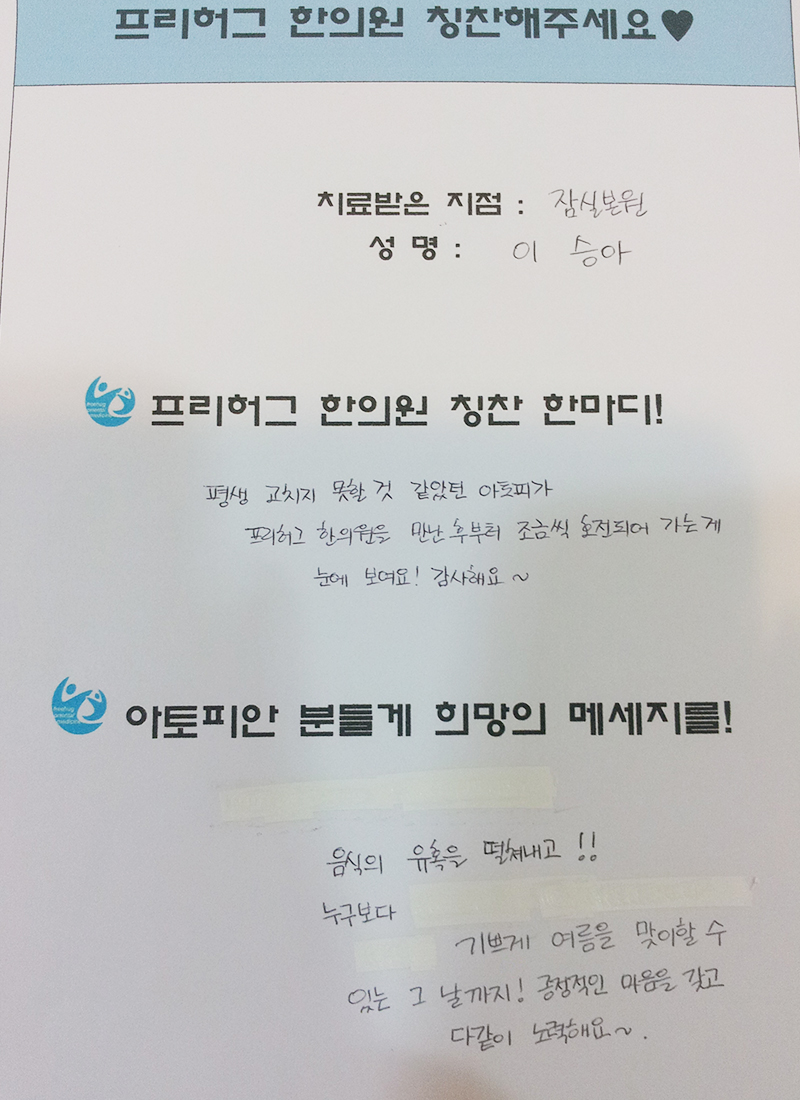 프리허그 한의원 칭찬해주세요♥
치료받은 지점 : 잠실본원
성 명 : 이 승아
프리허그 한의원 칭찬 한마디!
평생 고치지 못할 것 같았던 아토피가
프리허그 한의원을 만난 후부터 조금씩 호전되어 가는게
눈에 보여요! 감사해요~
아토피안 분들게 희망의 메세지를!
음식의 유혹을 떨쳐내고 !!
누구보다
기쁘게 여름을 맞이할 수
있는 그 날까지! 긍정적인 마음을 갖고
다같이 노력해요~.